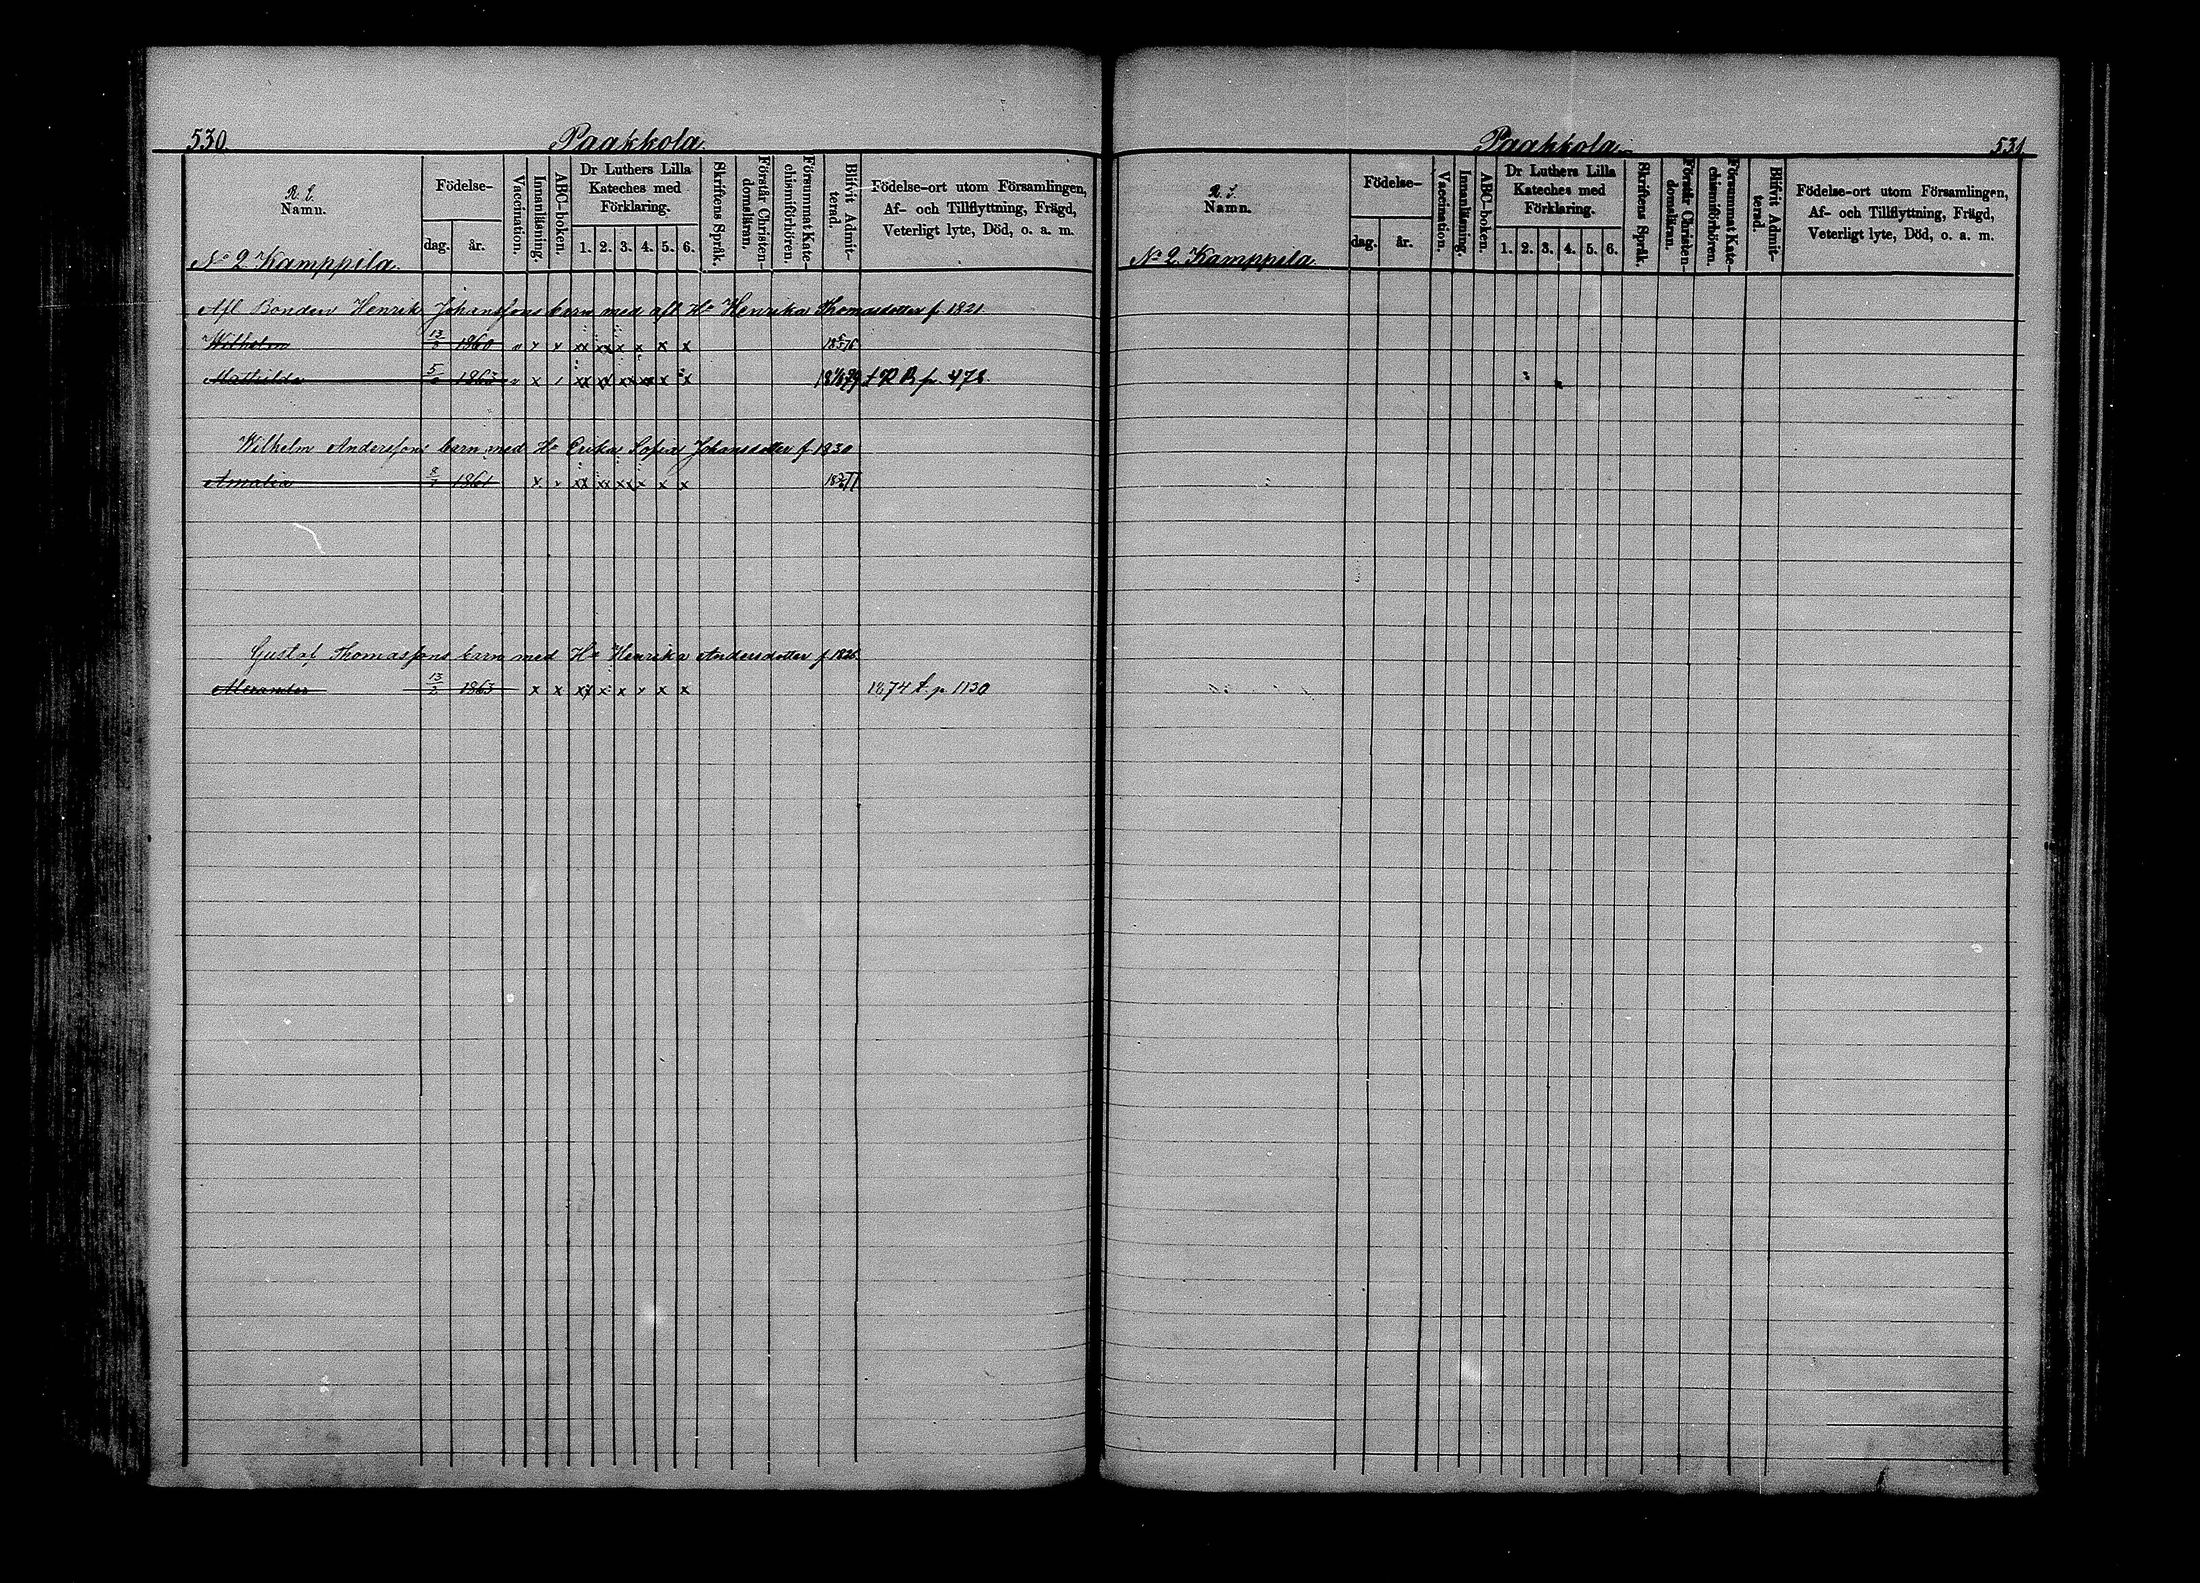 530. Paakkola.
R. L.
Namn.
Födelse-
dag. år.
Vaccination.
Innanläsning.
ABC-boken.
Dr Luthers Lilla Kateches med Förklaring.
1. 2. 3. 4. 5. 6.
Skriftens Språk.
Förstår Christen-
domsläran.
Försummat Kate-
chismiförhören.
Blifvit Admit-
terad.
Födelse-ort utom Församlingen,
Af- och Tillflyttning, Frägd,
Veterligt lyte, Död, o. a. m.
No 2 Kamppila.
Afl Bonden Henrik Johanssons barn med afl Ho Henrika Thomasdotter f. 1821
Wilhelm 1860 x x xx xx x x x x
Mathilda 1863 x xx x x t R B p. 478.
Wilhelm Anderssons barn med Ho Erika Sofia Johansdotter f 1830
Amalia 1861 x xx xx xx x x x
Gustaf Thomassons barn med Ho Henrika Andersdotter f 1826
Alexander 13/2 1863 x x xx x x x x x 1874 t. p. 1130
Paakkola. 531
Namn.
Födelse-
dag. år.
Vaccination.
Innanläsning.
ABC-boken.
Dr Luthers Lilla
Kateches med
Förklaring.
1. 2. 3. 4. 5. 6.
Skriftens Språk.
Förstår Christen-
domsläran.
Försummat Kate-
chismiförhören.
Blifvit Admit-
terad.
Födelse-ort utom Församlingen,
Af- och Tillflyttning, Frägd,
Veterligt lyte, Död, o. a. m.
No 2 Kamppila